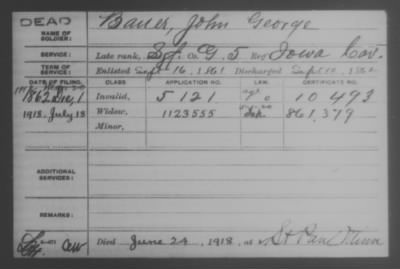 DEAD
NAME OF SOLDIER:
Bauer, John George
SERVICE:
Late rank, Sgt. Co. G, 5 Reg't Iowa Cav.
TERM OF SERVICE:
Enlisted Sept 16, 1861 Discharged Sept 10, 186
DATE OF FILING. CLASS. APPLICATION NO. LAW. CERTIFICATE NO.
1862 Dec, 1 Invalid, 5 121 10 493
1918-July 13 Widow, 1123555 861,379
Minor,
ADDITIONAL SERVICES:
REMARKS:
Died June 24, 1918, at St Paul Minn